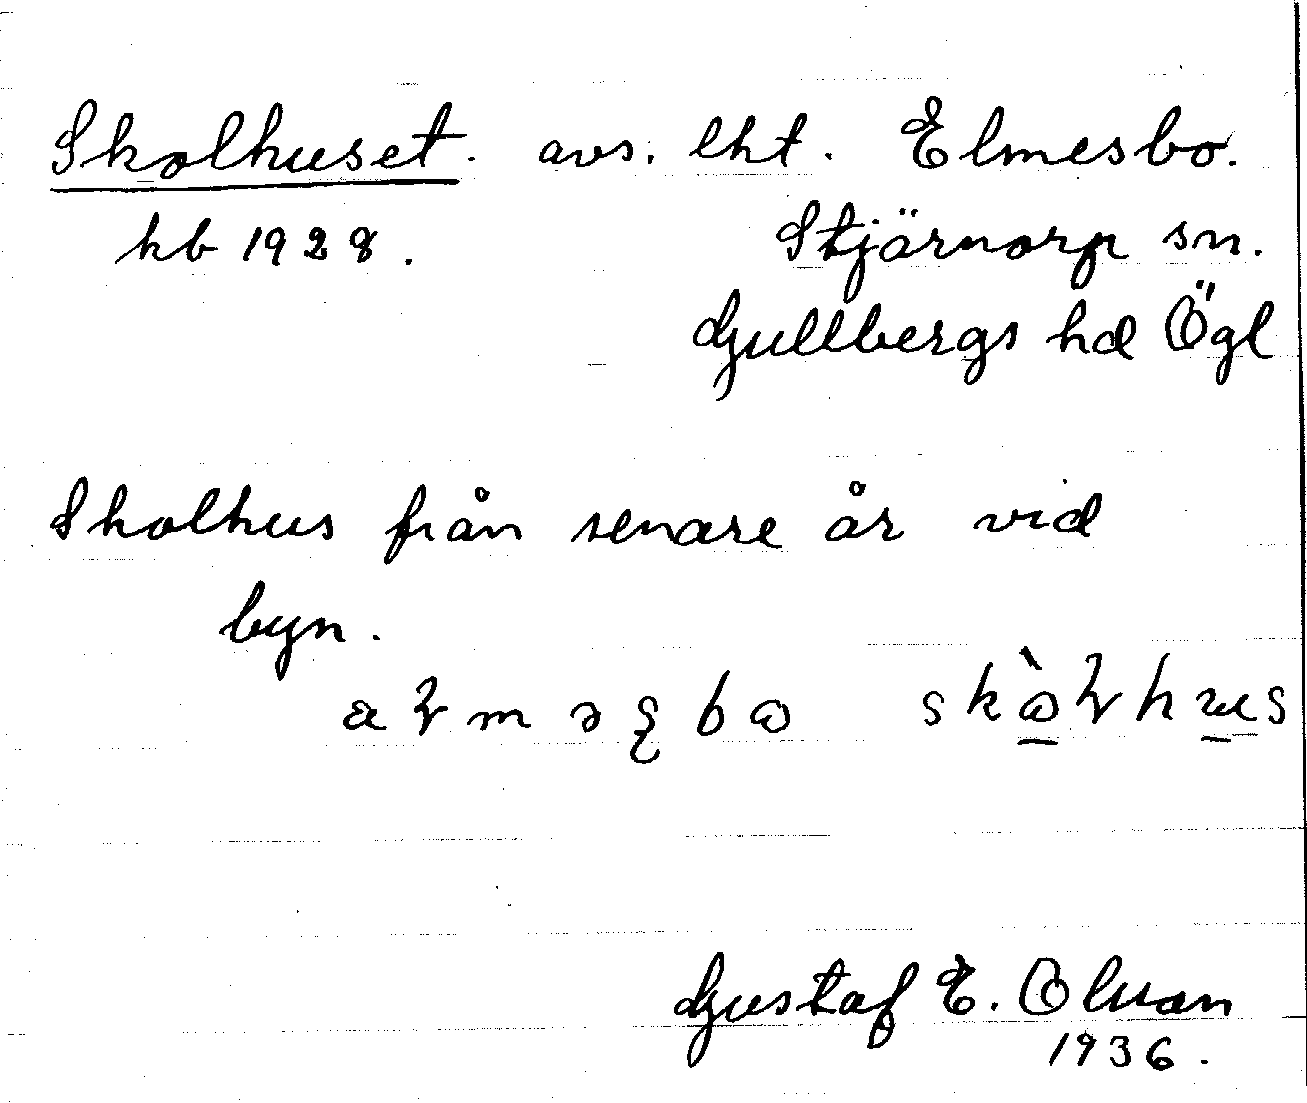 Skolhuset. avs. lht. Elmesbo.
kb 1928. Stjärnorp sn.
Gullbergs hd Ögl
Skolhus från senare år vid
byn.
Gustaf E. Olson
1936.